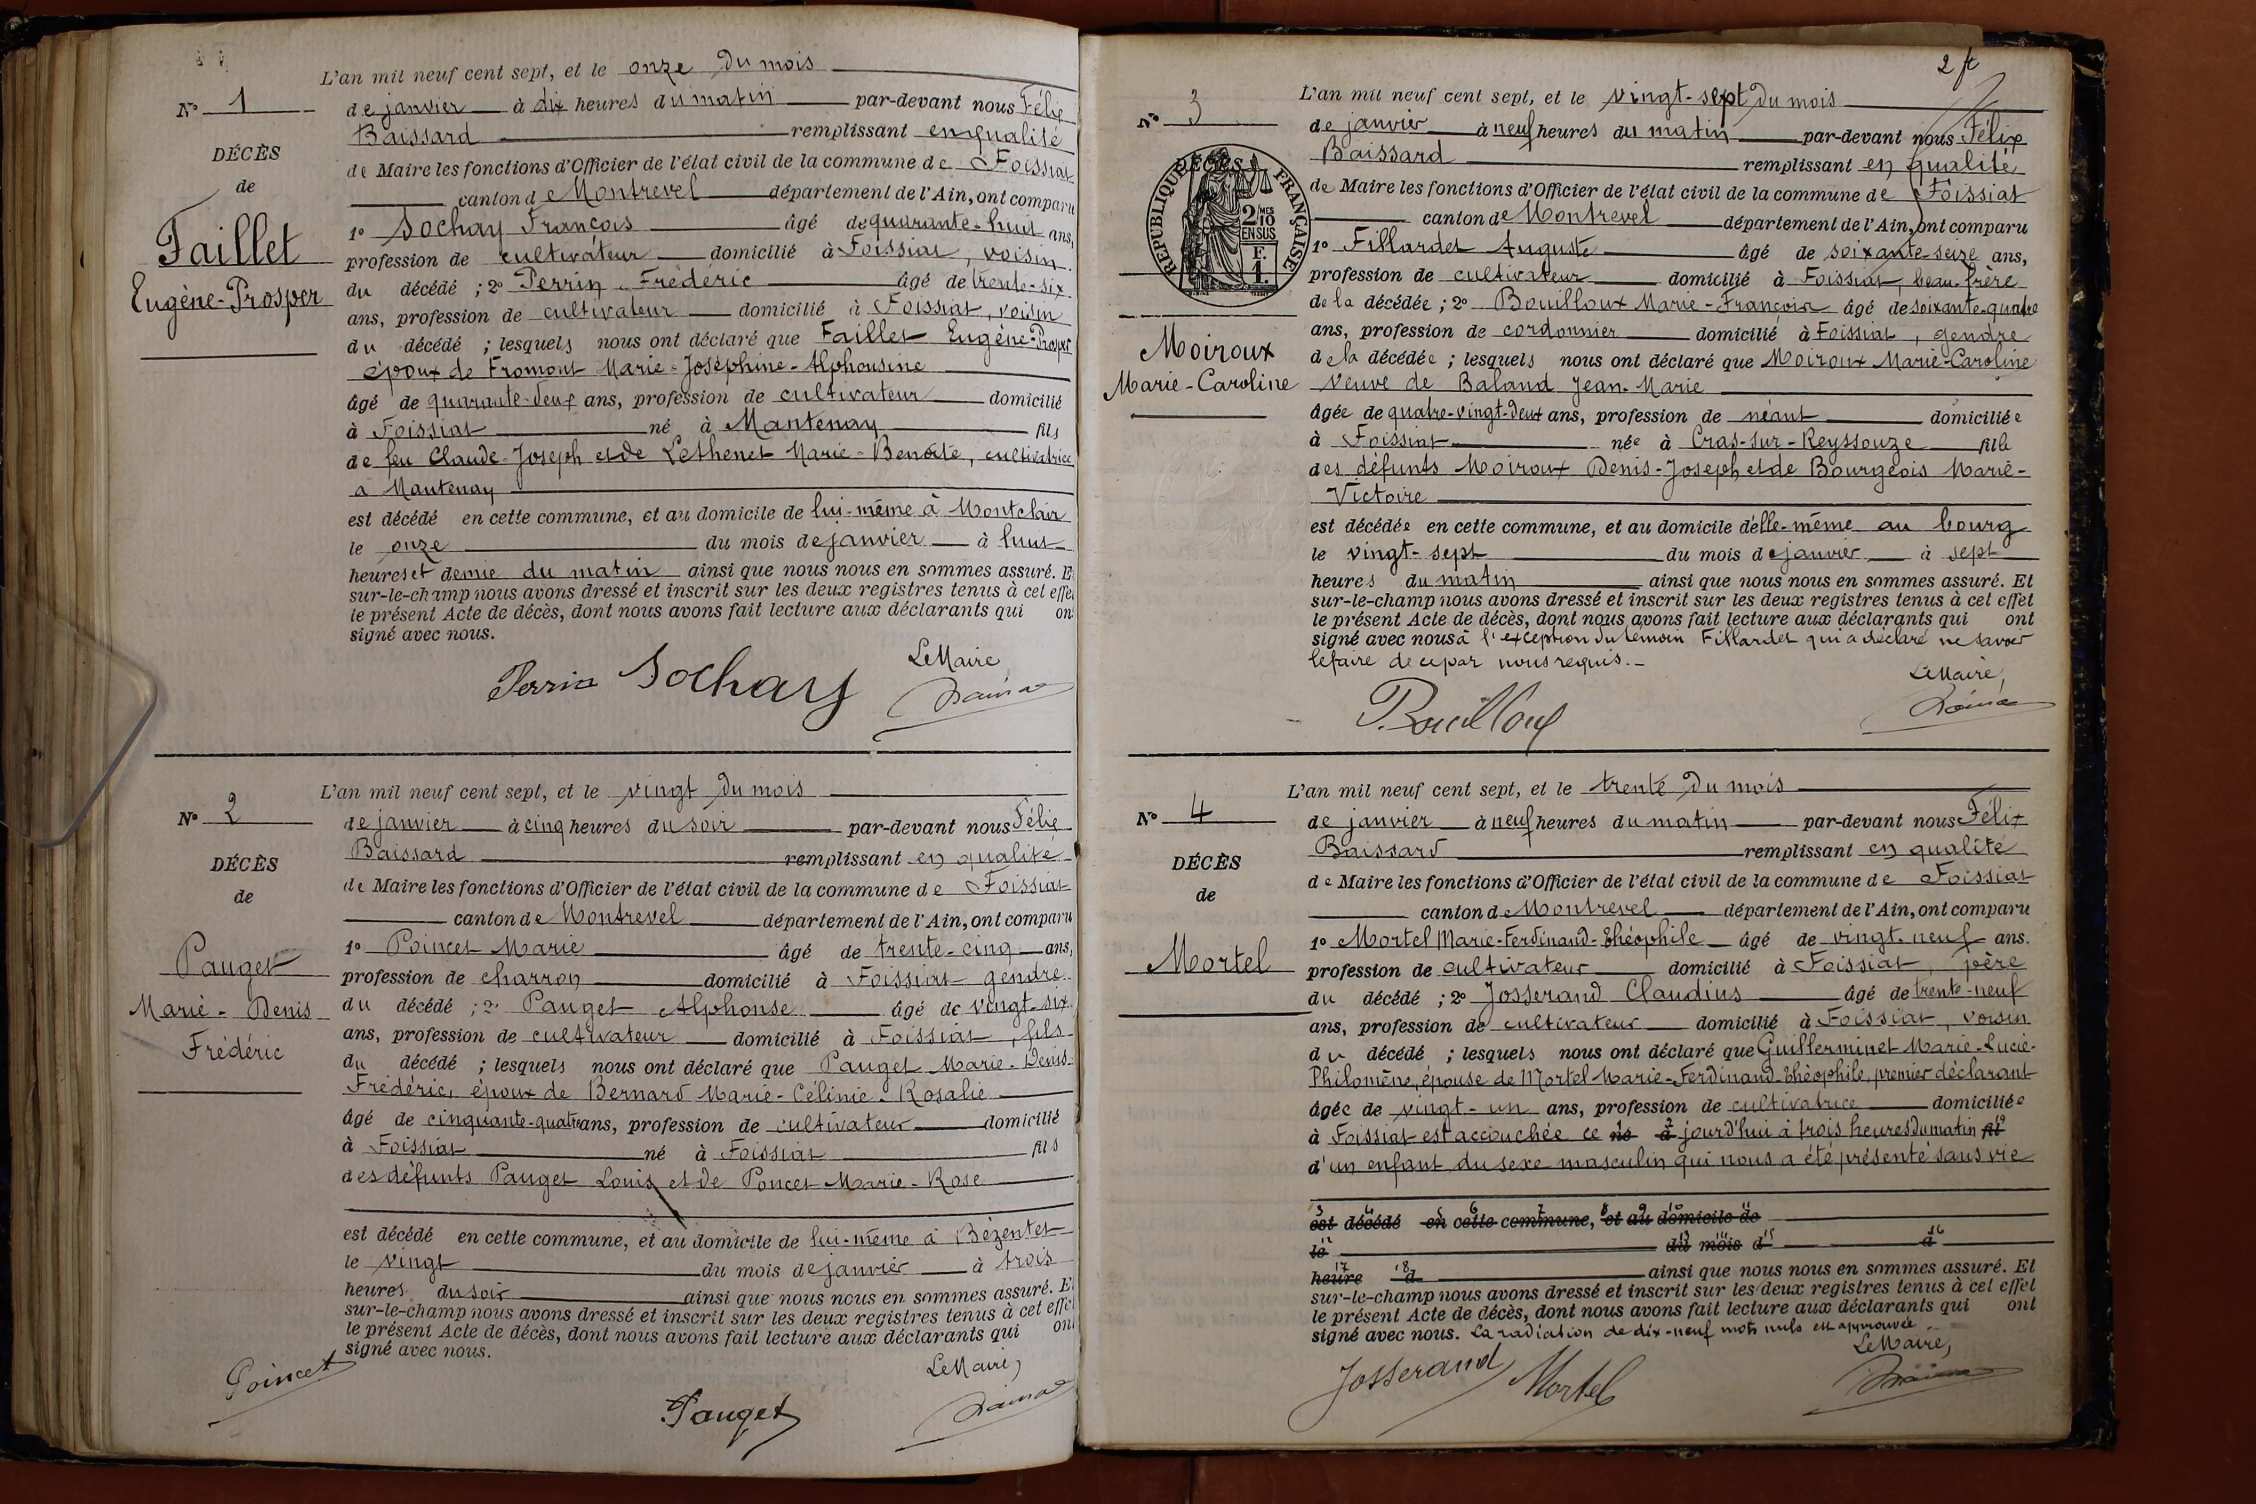 L'an mil neuf cent sept, et le onze du mois
N° 1
de janvier à dix heures du matin par-devant nous Félix
Baissard remplissant en qualité
DÉCÈS
de Maire les fonctions d'Officier de l'état civil de la commune de Foissiat
de
canton de Montrevel département de l'Ain, ont comparu
Faillet
1° Sochay François âgé de quarante-huit ans,
Eugène-Prosper
profession de cultivateur domicilié à Foissiat, voisin
du décédé ; 2° Perrin Frédéric âgé de trente-six
ans, profession de cultivateur domicilié à Foissiat, voisin
du décédé ; lesquels nous ont déclaré que Faillet Eugène-Prosper
époux de Fromont Marie-Joséphine-Alphonsine
âgé de quarante-deux ans, profession de cultivateur domicilié
à Foissiat né à Mantenay fils
de feu Claude-Joseph et de Lethenet Marie-Benoîte, cultivatrice
à Mantenay
est décédé en cette commune, et au domicile de lui-même à Montclair
le onze du mois de janvier à huit
heures et demie du matin ainsi que nous nous en sommes assuré. E
sur-le-champ nous avons dressé et inscrit sur les deux registres tenus à cet effe
le présent Acte de décès, dont nous avons fait lecture aux déclarants qui on
signé avec nous.
Le Maire
Perrin Sochay
L'an mil neuf cent sept, et le vingt du mois
N° 2
de janvier à cinq heures du soir par-devant nous Félix
Baissard remplissant en qualité
DÉCÈS
de Maire les fonctions d'Officier de l'état civil de la commune de Foissiat
de
canton de Montrevel département de l'Ain, ont comparu
Pauget
1° Poincet Marie âgé de trente-cinq ans,
Marie-Denis
Frédéric
profession de charron domicilié à Foissiat gendre
du décédé ; 2° Pauget Alphonse âgé de vingt-six
ans, profession de cultivateur domicilié à Foissiat, fils
du décédé ; lesquels nous ont déclaré que Pauget Marie-Denis-
Frédéric, époux de Bernard Marie-Célinie-Rosalie
âgé de cinquante-quatre ans, profession de cultivateur domicilié
à Foissiat né à Foissiat fils
des défunts Pauget Louis et de Poncet Marie-Rose
est décédé en cette commune, et au domicile de lui-même à Bézentet
le vingt du mois de janvier à trois
heures du soir ainsi que nous nous en sommes assuré. E
sur-le-champ nous avons dressé et inscrit sur les deux registres tenus à cet effe
le présent Acte de décès, dont nous avons fait lecture aux déclarants qui ont
signé avec nous.
Le Maire,
Poincet
Pauget
2 ft
L'an mil neuf cent sept, et le vingt-sept du mois
N° 3
de janvier à neuf heures du matin par-devant nous Félix
Baissard remplissant en qualité
DÉCÈS
RÉPUBLIQUE FRANÇAISE
2/10 MES
EN SUS
F.
1.
de Maire les fonctions d'Officier de l'état civil de la commune de Foissiat
canton de Montrevel département de l'Ain, ont comparu
1° Fillardet Auguste âgé de soixante-seize ans,
profession de cultivateur domicilié à Foissiat, beau-frère
de la décédée ; 2° Bouilloux Marie-François âgé de soixante-quatre
ans, profession de cordonnier domicilié à Foissiat, gendre
Moiroux
Marie-Caroline
de la décédée ; lesquels nous ont déclaré que Moiroux Marie-Caroline
veuve de Baland Jean-Marie
âgée de quatre-vingt-deux ans, profession de néant domiciliée
à Foissiat née à Cras-sur-Reyssouze fille
des défunts Moiroux Denis-Joseph et de Bourgeois Marie-
Victoire
est décédée en cette commune, et au domicile d'elle-même au bourg
le vingt-sept du mois de janvier à sept
heures du matin ainsi que nous nous en sommes assuré. Et
sur-le-champ nous avons dressé et inscrit sur les deux registres tenus à cet effet
le présent Acte de décès, dont nous avons fait lecture aux déclarants qui ont
signé avec nous à l'exception du témoin Fillardet qui a déclaré ne savoir
le faire de ce par nous requis.
Le Maire,
Bouilloux
L'an mil neuf cent sept, et le trente du mois
N° 4
de janvier à neuf heures du matin par-devant nous Félix
Baissard remplissant en qualité
DÉCÈS
de Maire les fonctions d'Officier de l'état civil de la commune de Foissiat
de
canton de Montrevel département de l'Ain, ont comparu
1° Mortel Marie-Ferdinand-Théophile âgé de vingt-neuf ans.
Mortel
profession de cultivateur domicilié à Foissiat, père
du décédé ; 2° Josserand Claudius âgé de trente-neuf
ans, profession de cultivateur domicilié à Foissiat, voisin
du décédé ; lesquels nous ont déclaré que Guillerminet Marie-Lucie-
Philomène, épouse de Mortel Marie-Ferdinand-Théophile, premier déclarant
âgée de vingt-un ans, profession de cultivatrice domiciliée
à Foissiat est accouchée ce né à jourd'hui à trois heures du matin fil
d'un enfant du sexe masculin qui nous a été présenté sans vie
3 4 5 6 7 8 9 10 11
est décédé en cette commune, et au domicile de
le du mois d à
heure d ainsi que nous nous en sommes assuré. Et
sur-le-champ nous avons dressé et inscrit sur les deux registres tenus à cet effet
le présent Acte de décès, dont nous avons fait lecture aux déclarants qui ont
signé avec nous. La radiation de dix-neuf mots nuls est approuvée
Le Maire,
Josserand Mortel